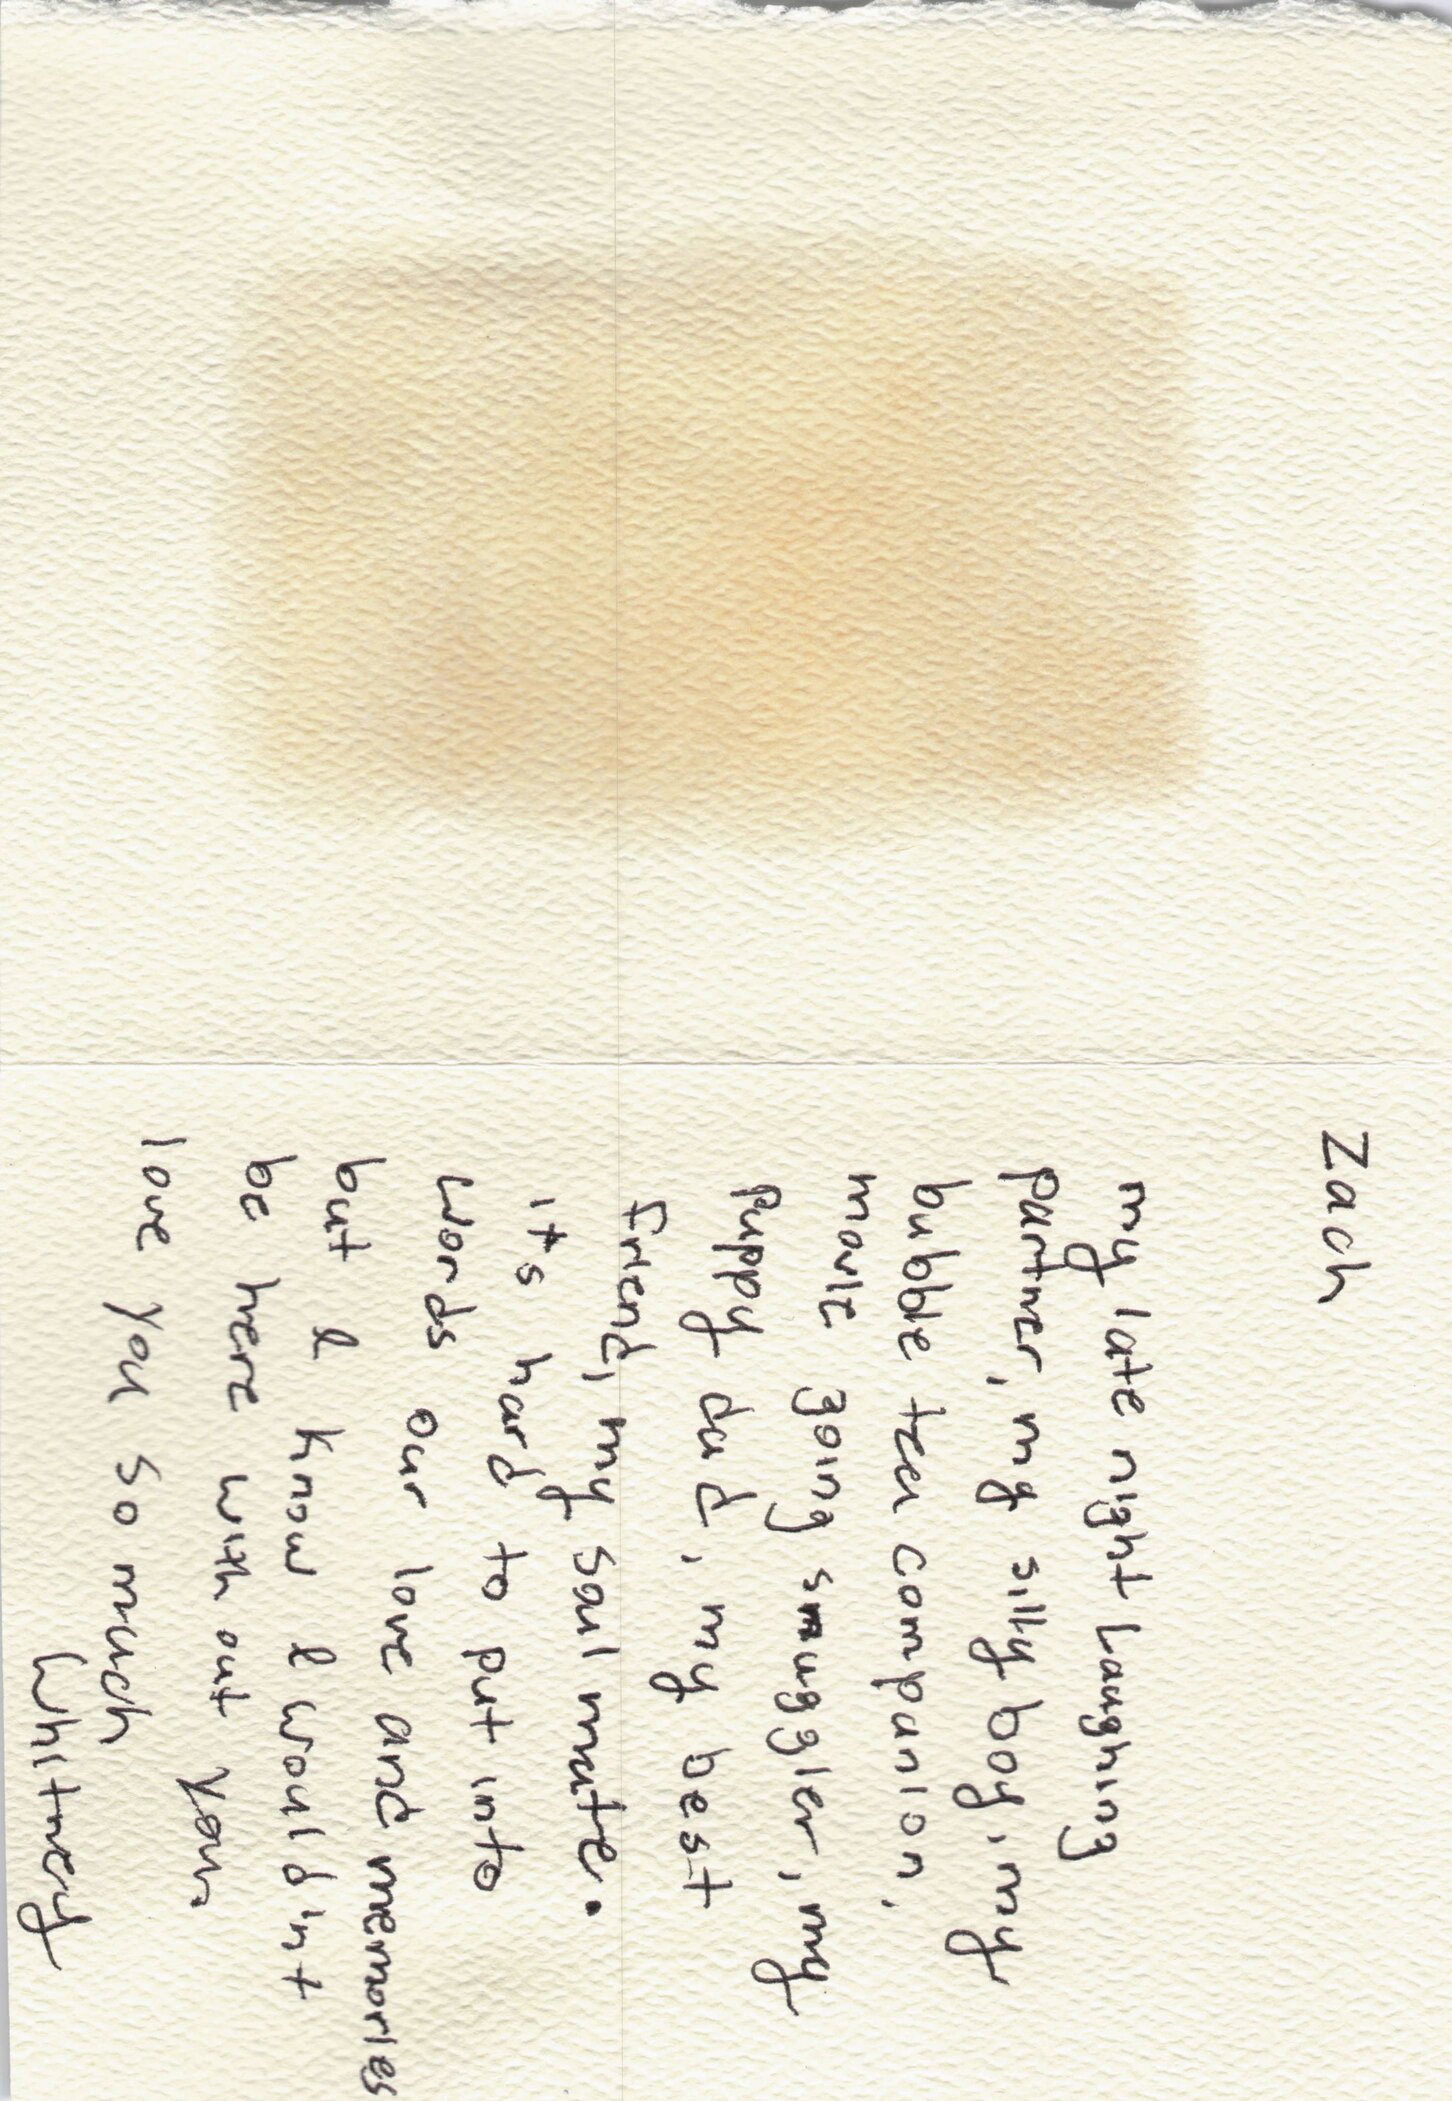 Zach
my late night Laughing
partner, my silly boy, my
bubble tea companion,
movie going smuggler, my
puppy dad, my best
friend, my soul mate.
its hard to put into
words our love and memories
but I know I wouldn't
be here with out you
love you so much
Whitney